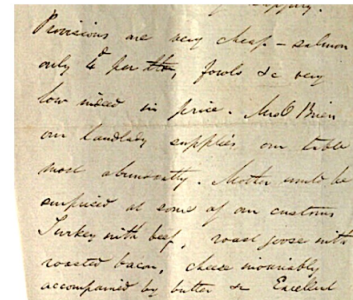 Provisions are very cheap - salmon
only 4d per lb, fowls &c very
low indeed in price. Mrs O Brien
our landlady supplies our table
most abundantly. Mother would be
surprised at some of our customs
Turkey with beef, roast goose with
roasted bacon, cheese invariably
accompanied by butter &c Excellent